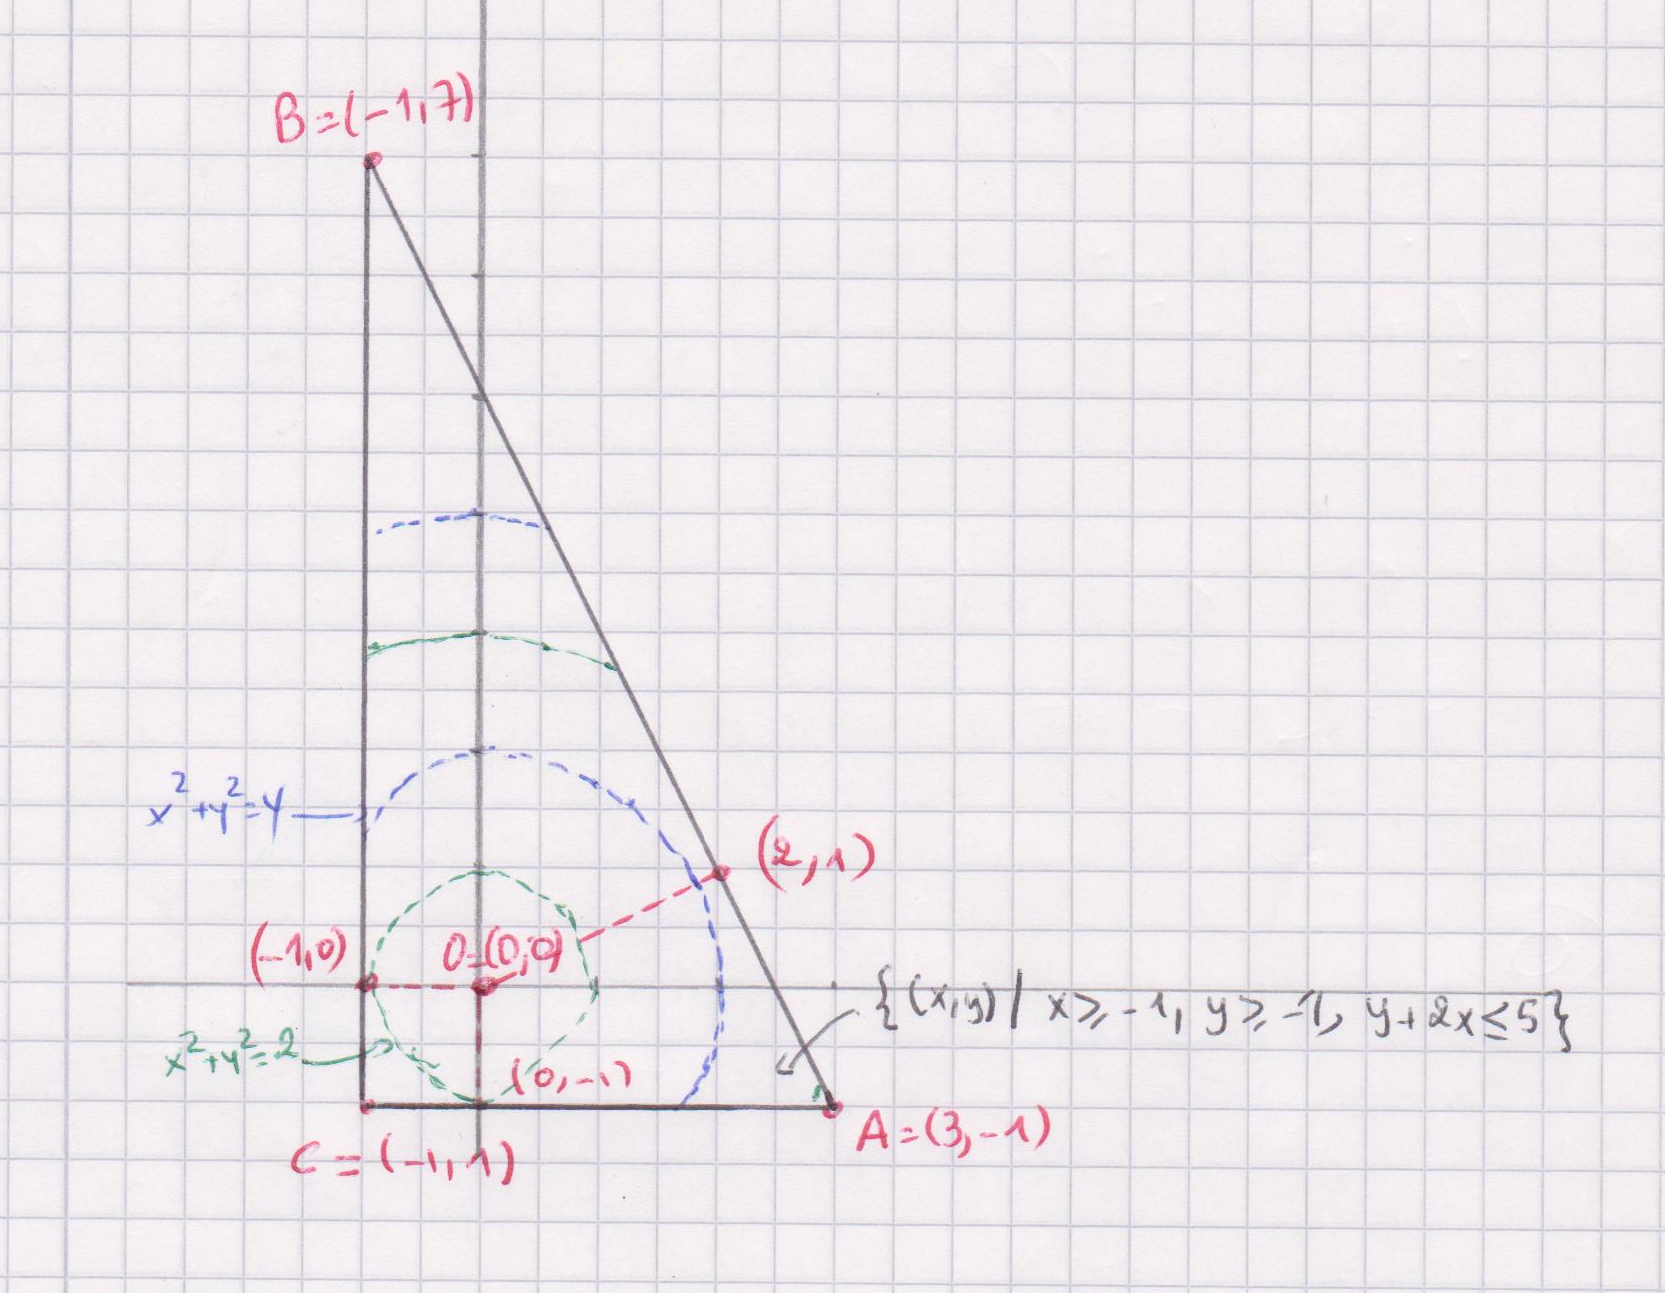 B=(-1,7)
x²+y²=4
(2,1)
(-1,0)
O=(0,0)
{(x,y) | x≥-1, y≥-1, y+2x≤5}
x²+y²=2
(0,-1)
A=(3,-1)
C=(-1,1)